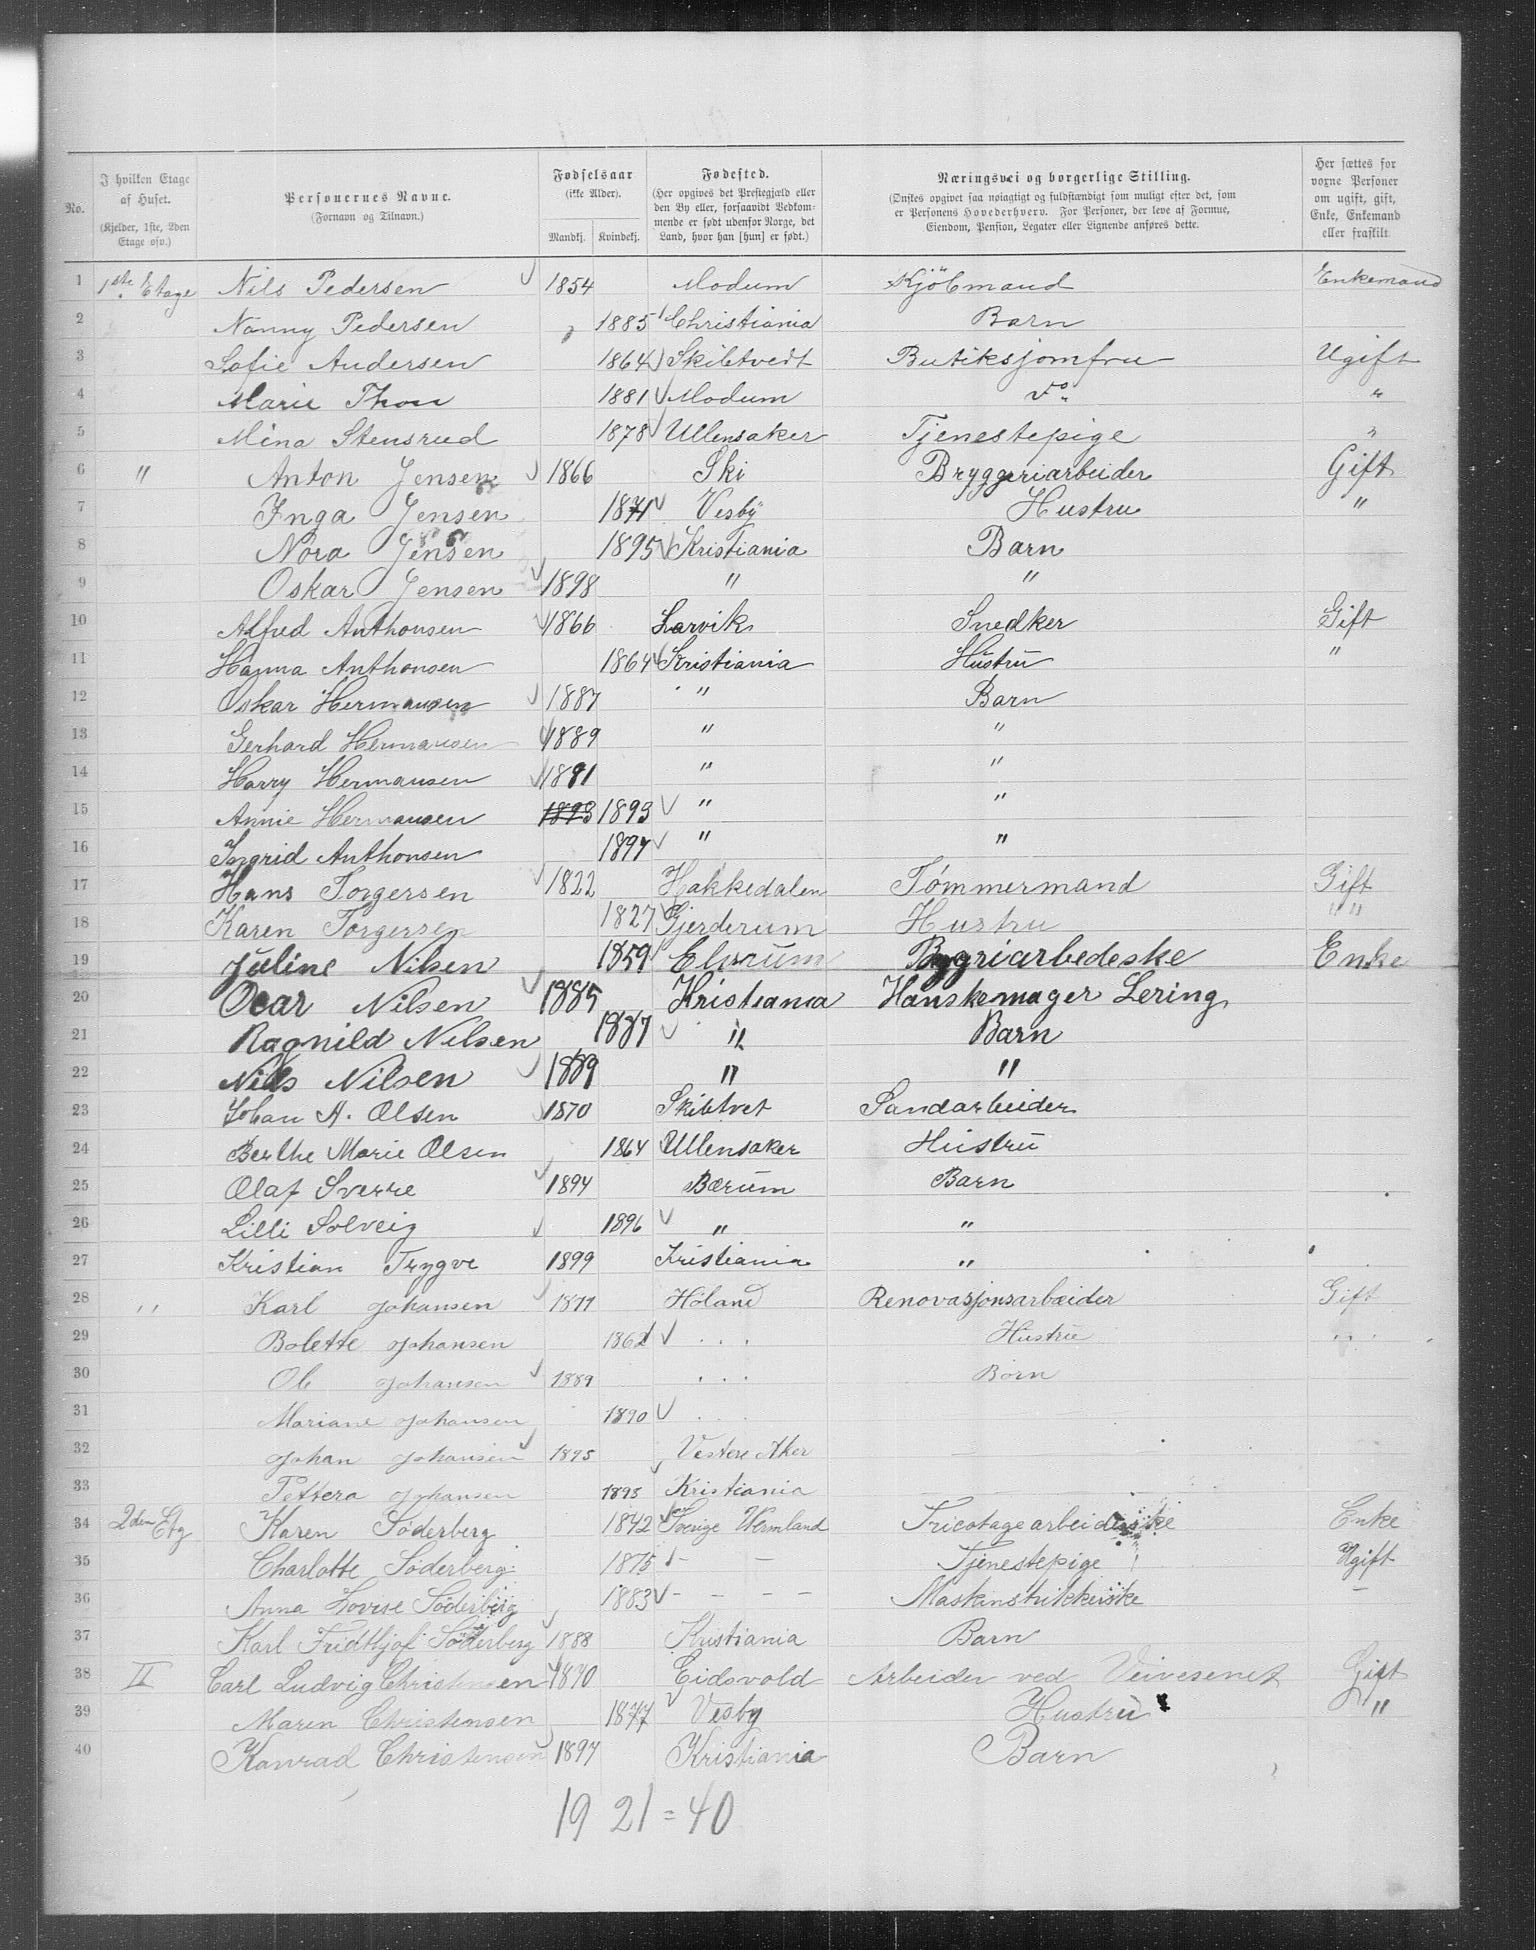 No.
I hvilken Etage af Huset.
(Kjelder, 1ste, 2den Etage osv.)
Personernes Navne.
(Fornavn og Tilnavn.)
Fødselsaar
(ikke Alder).
Mandkj. Kvindekj.
Fødested.
(Her opgives det Prestegjæld eller den By eller, forsaavidt Vedkommende er født udenfor Norge, det Land, hvor han [hun] er født.)
Næringsvei og borgerlige Stilling.
(Ønskes opgivet saa nøiagtigt og fuldstændigt som muligt efter det, som er Personens Hovederhverv. For Personer, der leve af Formue, Eiendom, Pension, Legater eller Lignende anføres dette.
Her sættes for voxne Personer om ugift, gift, Enke, Enkemand eller fraskilt.
1 1ste Etage Nils Pedersen 1854 Modum Kjöbmand Enkemand
2 Nanny Pedersen 1885 Christiania Barn
3 Sofie Andersen 1864 Skibtvedt Butiksjomfru Ugift
4 Marie Thon 1881 Modum Do "
5 Mina Stensrud 1878 Ullensaker Tjenestepige "
6 " Anton Jensen 1866 Ski Bryggeriarbeider Gift
7 Inga Jensen 1871 Vesby Hustru "
8 Nora Jensen 1895 Kristiania Barn
9 Oskar Jensen 1898 " "
10 Alfred Anthonsen 1866 Larvik Snedker Gift
11 Hanna Anthonsen 1864 Kristiania Hustru "
12 Oskar Hermansen 1887 " Barn
13 Gerhard Hermansen 1889 " "
14 Harry Hermansen 1891 " "
15 Annie Hermansen 1893 1893 " "
16 Ingrid Anthonsen 1897 " "
17 Hans Torgersen 1822 Hakkedalen Tømmermand Gift
18 Karen Torgersen 1827 Gjerderum Hustru " "
19 Juline Nilsen 1859 Elvrum Bygriarbedeske Enke
20 Ocar Nilsen 1885 Kristiania Hanskemager Lering
21 Ragnild Nilsen 1887 " Barn
22 Nils Nilsen 1889 " "
23 Johan A. Olsen 1870 Skibtvet Sandarbeider
24 Berthe Marie Olsen 1864 Ullensaker Hustru
25 Olaf Sverre 1894 Bærum Barn
26 Lilli Solveig 1896 " "
27 Kristian Trygve 1899 Kristiania "
28 " Karl Johansen 1871 Høland Renovasjonsarbæider Gift
29 Bolette Johansen 1862 . . . Hustru " .
30 Ole Johansen 1889 . . . Børn
31 Mariane Johansen 1890 . . .
32 Johan Johansen 1895 Vestere Aker
33 Pettera Johansen 1895 Kristiania
34 2den Etg Karen Söderberg 1842 Sverige Wermland Tricotagearbeiderske Enke
35 Charlotte Söderberg 1875 - - Tjenestepige Ugift
36 Anna Lovise Söderberg 1883 - - - - Maskinstrikkerske -
37 Karl Fridthjof Söderberg 1888 Kristiania Barn
38 II Carl Ludvig Christensen 1870 Eidsvold Arbeider ved Veivesenet Gift
39 Maren Christensen 1877 Vesby Hustru "
40 Konrad Christensen 1897 Kristiania Barn
19 21 = 40